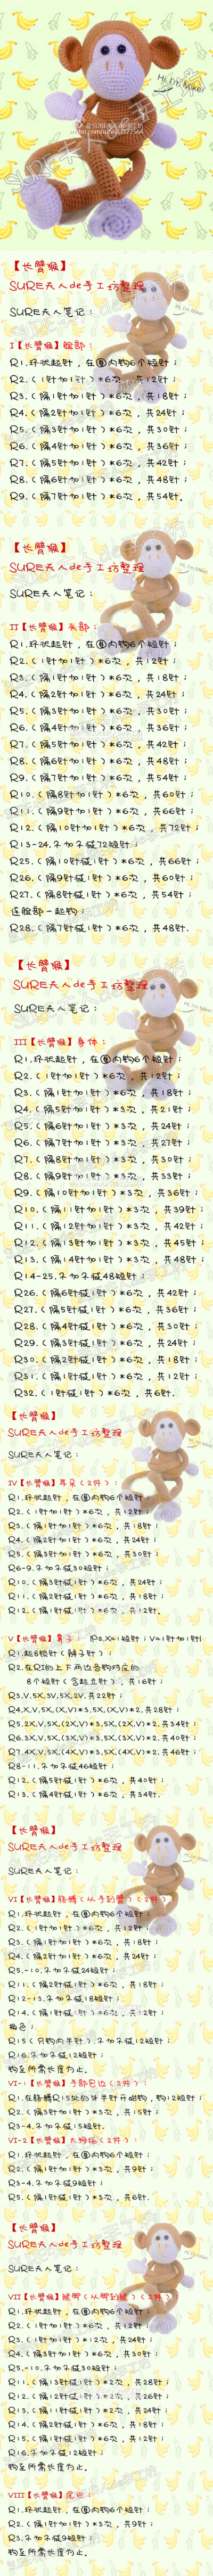 Hi, I'm Mike!
【长臂猴】
SURE夫人de手工坊整理
SURE夫人笔记：
I【长臂猴】脸部：
R1.环状起针，在圈内钩6个短针；
R2.（1针加1针）*6次，共12针；
R3.（隔1针加1针）*6次，共18针；
R4.（隔2针加1针）*6次，共24针；
R5.（隔3针加1针）*6次，共30针；
R6.（隔4针加1针）*6次，共36针；
R7.（隔5针加1针）*6次，共42针；
R8.（隔6针加1针）*6次，共48针；
R9.（隔7针加1针）*6次，共54针。
【长臂猴】
SURE夫人de手工坊整理
SURE夫人笔记：
II【长臂猴】头部：
R1.环状起针，在圈内钩6个短针；
R2.（1针加1针）*6次，共12针；
R3.（隔1针加1针）*6次，共18针；
R4.（隔2针加1针）*6次，共24针；
R5.（隔3针加1针）*6次，共30针；
R6.（隔4针加1针）*6次，共36针；
R7.（隔5针加1针）*6次，共42针；
R8.（隔6针加1针）*6次，共48针；
R9.（隔7针加1针）*6次，共54针；
R10.（隔8针加1针）*6次，共60针；
R11.（隔9针加1针）*6次，共66针；
R12.（隔10针加1针）*6次，共72针；
R13-24.不加不减72短针；
R25.（隔10针减1针）*6次，共66针；
R26.（隔9针减1针）*6次，共60针；
R27.（隔8针减1针）*6次，共54针；
连脸部一起钩：
R28.（隔7针减1针）*6次，共48针.
【长臂猴】
SURE夫人de手工坊整理
SURE夫人笔记：
III【长臂猴】身体：
R1.环状起针，在圈内钩6个短针；
R2.（1针加1针）*6次，共12针；
R3.（隔1针加1针）*6次，共18针；
R4.（隔5针加1针）*3次，共21针；
R5.（隔6针加1针）*3次，共24针；
R6.（隔7针加1针）*3次，共27针；
R7.（隔8针加1针）*3次，共30针；
R8.（隔9针加1针）*3次，共33针；
R9.（隔10针加1针）*3次，共36针；
R10.（隔11针加1针）*3次，共39针；
R11.（隔12针加1针）*3次，共42针；
R12.（隔13针加1针）*3次，共45针；
R13.（隔14针加1针）*3次，共48针；
R14-25.不加不减48短针；
R26.（隔6针减1针）*6次，共42针；
R27.（隔5针减1针）*6次，共36针；
R28.（隔4针减1针）*6次，共30针；
R29.（隔3针减1针）*6次，共24针；
R30.（隔2针减1针）*6次，共18针；
R31.（隔1针减1针）*6次，共12针；
R32.（1针减1针）*6次，共6针.
【长臂猴】
SURE夫人de手工坊整理
SURE夫人笔记：
IV【长臂猴】耳朵（2件）：
R1.环状起针，在圈内钩6个短针；
R2.（1针加1针）*6次，共12针；
R3.（隔1针加1针）*6次，共18针；
R4.（隔2针加1针）*6次，共24针；
R5.（隔3针加1针）*6次，共30针；
R6-9.不加不减30短针；
R10.（隔3针减1针）*6次，共24针；
R11.（隔2针减1针）*6次，共18针；
R12.（隔1针减1针）*6次，共12针。
V【长臂猴】鼻子： 【PS.X=1短针；V=1针加1针】
R1.起8短针（辫子针）；
R2.在R1的上下两边各钩对应的
8个短针（含起立针），共16针；
R3.V,5X,3V,5X,2V.共22针；
R4.X,V,5X,(X,V)*3,5X,(X,V)*2.共28针；
R5.2X,V,5X,(2X,V)*3,5X,(2X,V)*2.共34针；
R6.3X,V,5X,(3X,V)*3,5X,(3X,V)*2.共40针；
R7.4X,V,5X,(4X,V)*3,5X,(4X,V)*2.共46针；
R8-11.不加不减46短针；
R12.（隔5针减1针）*6次，共40针；
R13.（隔4针减1针）*6次，共34针.
【长臂猴】
SURE夫人de手工坊整理
SURE夫人笔记：
VI【长臂猴】胳膊（从手到臂）（2件）：
R1.环状起针，在圈内钩6个短针；
R2.（1针加1针）*6次，共12针；
R3.（隔1针加1针）*6次，共18针；
R4.（隔2针加1针）*6次，共24针；
R5.-10.不加不减24短针；
R11.（隔2针减1针）*6次，共18针；
R12-13.不加不减18短针；
R14.（隔1针减1针）*6次，共12针；
换色：
R15（只钩内半针）.不加不减12短针；
R16.不加不减12短针；
钩至所需长度为止。
VI-1【长臂猴】手部包边（2件）：
R1.在胳膊R15处的外半针开始钩，钩12短针；
R2.（隔3针加1针）*3次，共15针；
R3-4.不加不减15短针.
VI-2【长臂猴】大拇指（2件）：
R1.环状起针，在圈内钩6个短针；
R2.（隔1针加1针）*3次，共9针；
R3-4.不加不减9短针；
R5.（隔1针减1针）*3次，共6针.
【长臂猴】
SURE夫人de手工坊整理
SURE夫人笔记：
VII【长臂猴】腿脚（从脚到腿）（2件）：
R1.环状起针，在圈内钩6个短针；
R2.（1针加1针）*6次，共12针；
R3.（1针加1针）*12次，共24针；
R4.（隔3针加1针）*6次，共30针；
R5.-10.不加不减30短针；
R11.（隔13针减1针）*2次，共28针；
R12.（隔12针减1针）*2次，共26针；
R13.（隔11针减1针）*2次，共24针；
R14.（隔2针减1针）*6次，共18针；
R15.（隔1针减1针）*6次，共12针；
R16.不加不减12短针；
钩至所需长度为止。
VIII【长臂猴】尾巴：
R1.环状起针，在圈内钩6个短针；
R2.（隔1针加1针）*3次，共9针；
R3.不加不减9短针；
钩至所需长度为止。